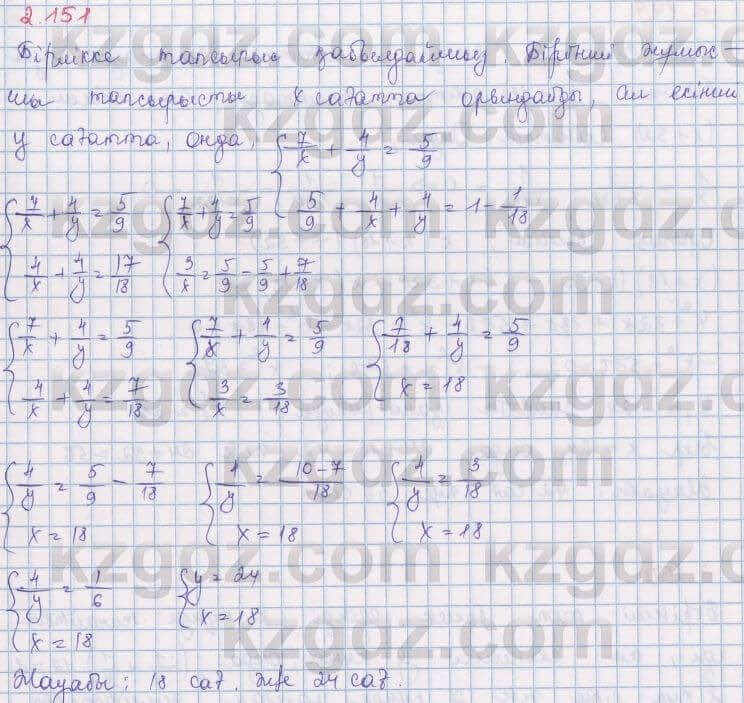 2.151
Бірлікке тапсырыс қабылдаймыз. Бірінші жұмыс-
шы тапсырысты x сағатта орындайды, ал екінші
y сағатта, онда, { 7/x + 4/y = 5/9
5/9 + 4/x + 4/y = 1 - 1/18
{ 7/x + 4/y = 5/9 { 7/x + 4/y = 5/9
4/x + 4/y = 17/18 3/x = 5/9 - 5/9 + 7/18
{ 7/x + 4/y = 5/9 { 7/x + 4/y = 5/9 { 7/18 + 4/y = 5/9
4/x + 4/y = 7/18 3/x = 3/18 x = 18
{ 4/y = 5/9 - 7/18 { 4/y = 10-7/18 { 4/y = 3/18
x = 18 x = 18 x = 18
{ 4/y = 1/6 { y = 24
x = 18 x = 18
Жауабы: 18 сағ. және 24 сағ.
kzgdz.com